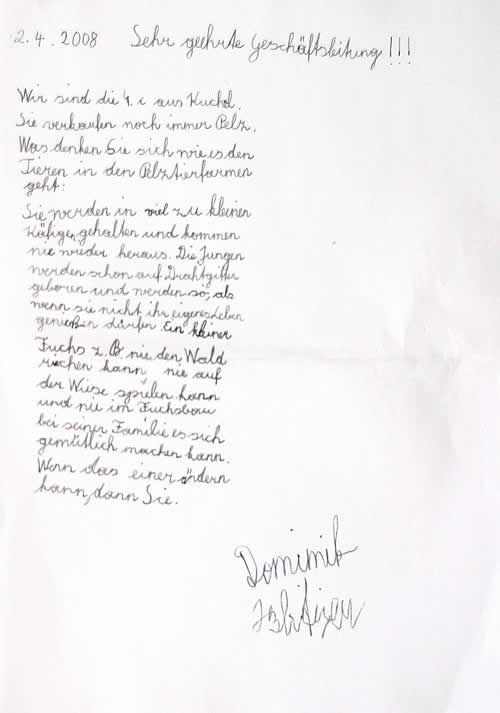 2.4.2008 Sehr geehrte Geschäftsleitung!!!
Wir sind die 4. c aus Kuchl.
Sie verkaufen noch immer Pelz.
Was denken Sie sich wie es den
Tieren in den Pelztierfarmen
geht:
Sie werden in viel zu kleinen
Käfigen gehalten und kommen
nie wieder heraus. Die Jungen
werden schon auf Drahtgitter
geboren und werden so, als
wenn sie nicht ihr eigenes Leben
genießen dürfen. Ein kleiner
Fuchs z.B. nie den Wald
riechen kann nie auf
der Wiese spielen kann
und nie im Fuchsbau
bei seiner Familie es sich
gemütlich machen kann.
Wenn das einer ändern
kann, dann Sie.
Dominik